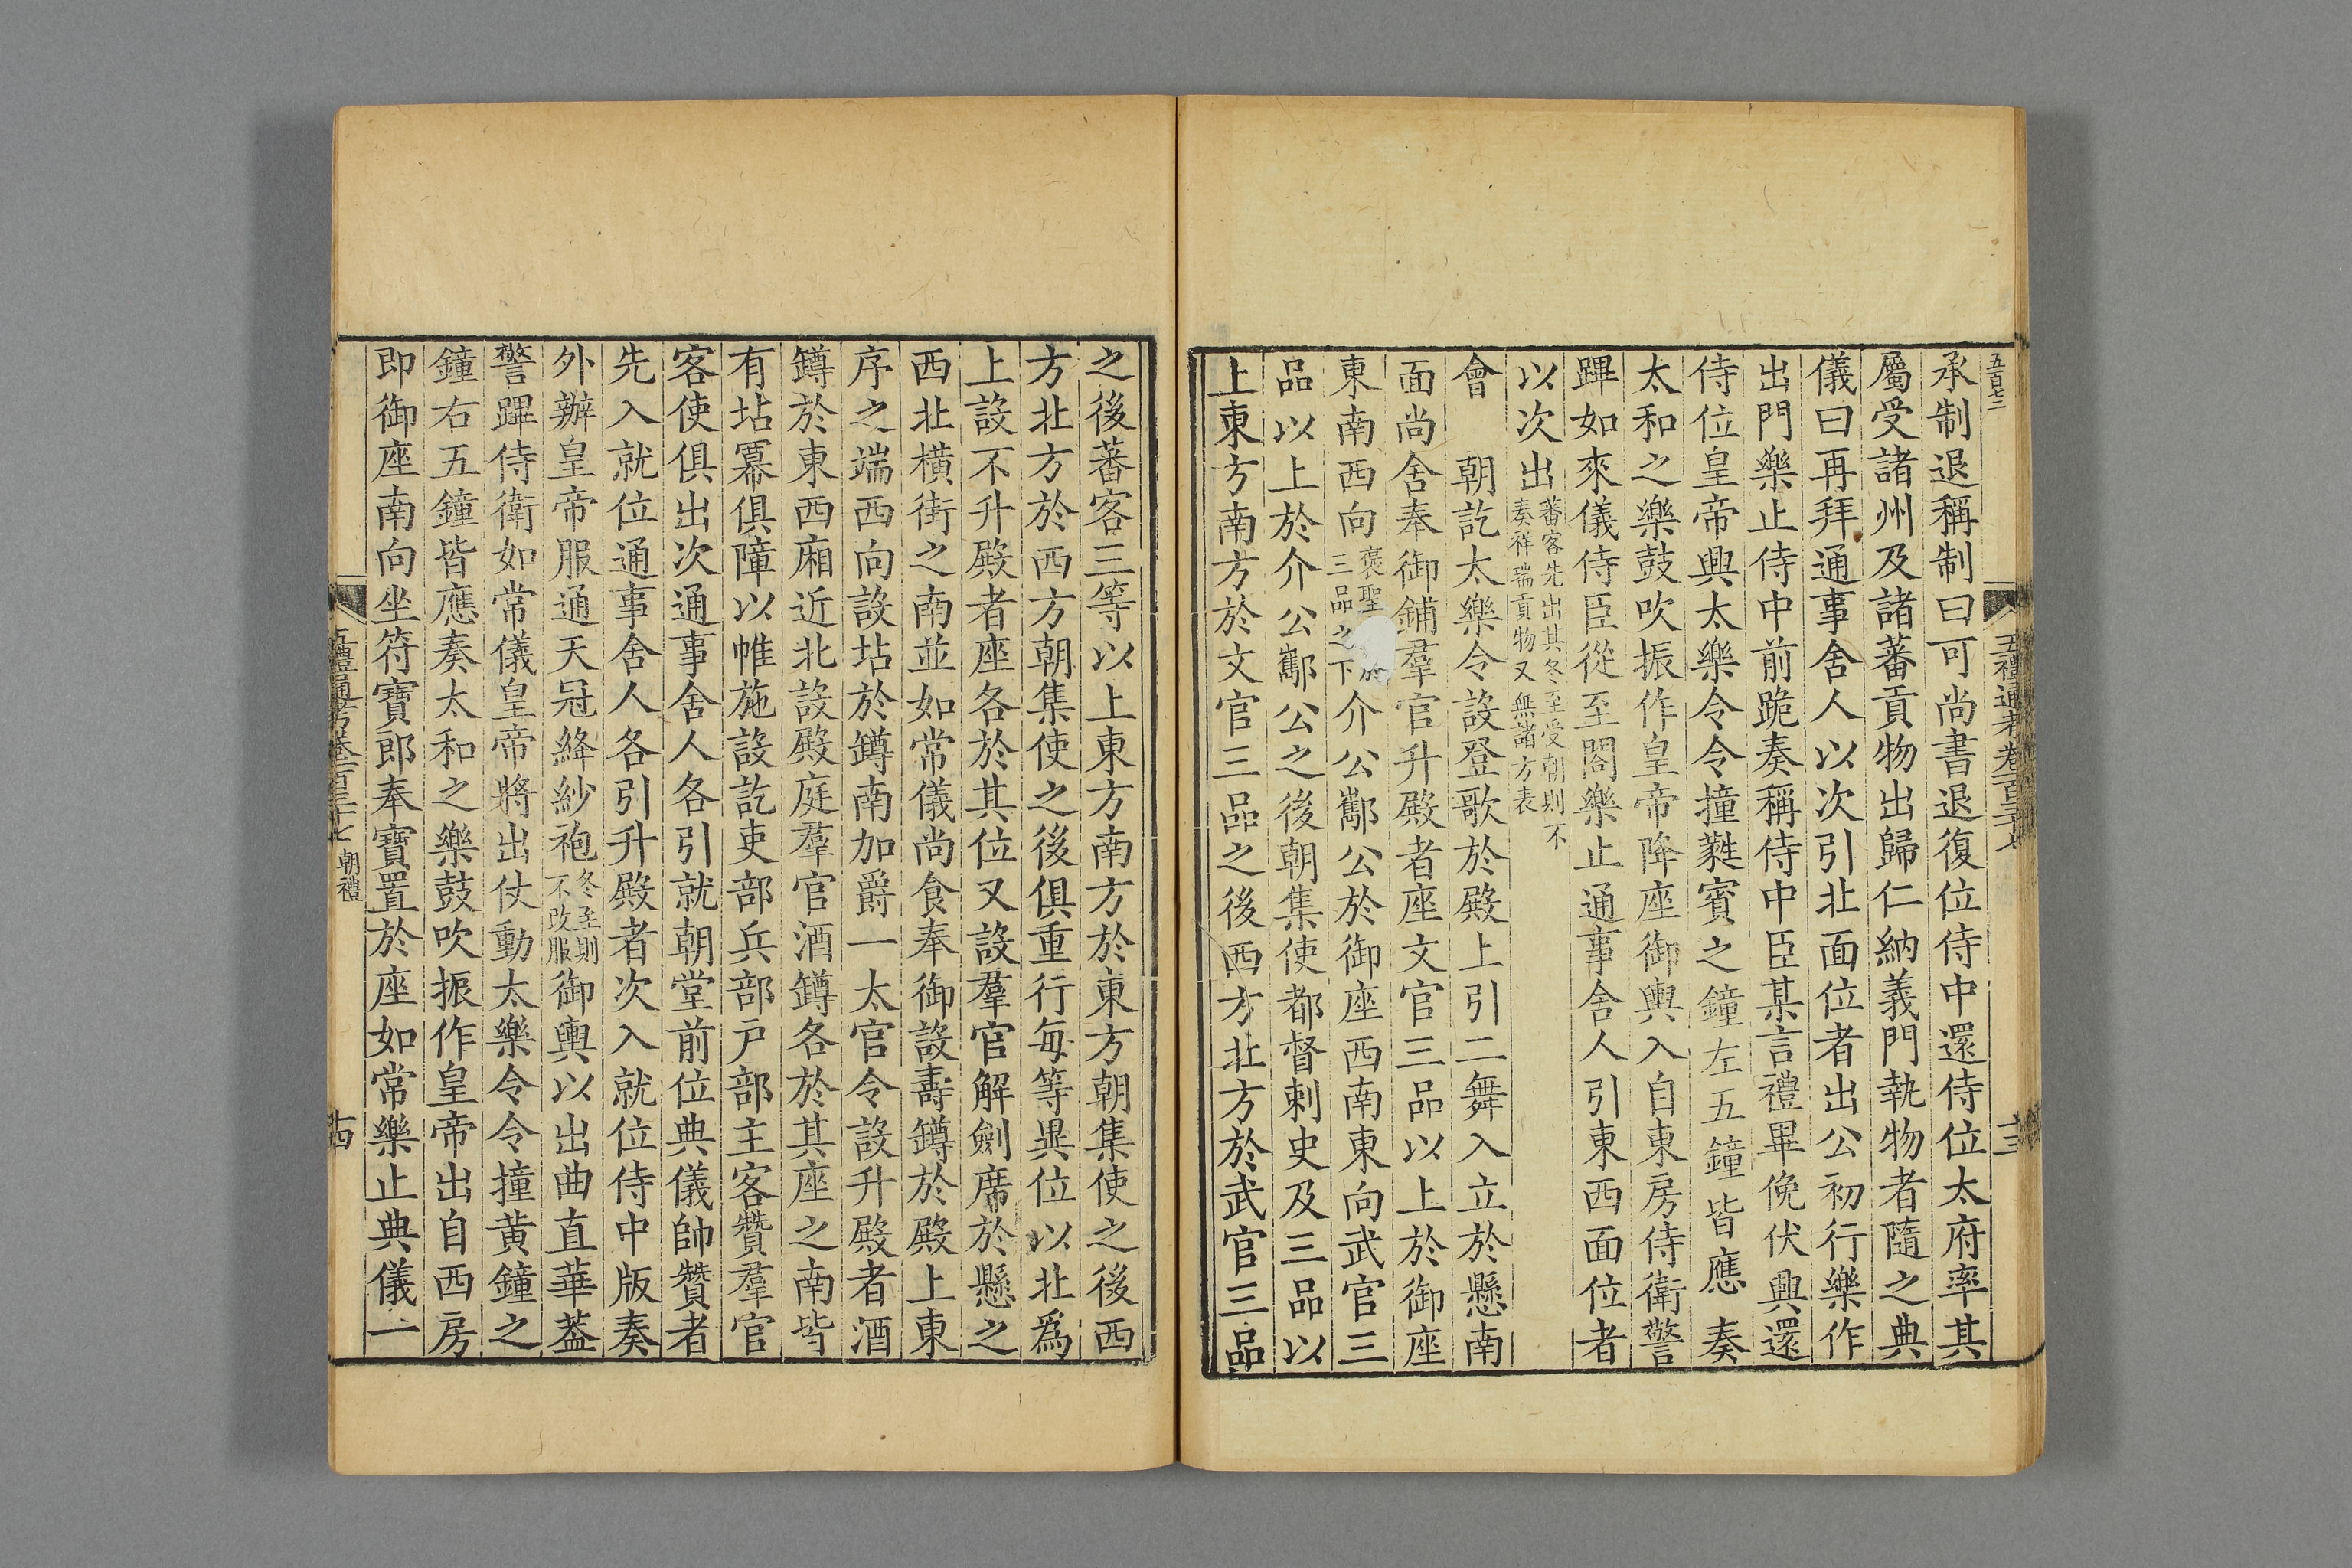 五百七二
五禮通考卷一百三十七
十三
承制退稱制曰可尚書退復位侍中還侍位太府率其
屬受諸州及諸蕃貢物出歸仁納義門執物者隨之典
儀曰再拜通事舍人以次引北面位者出公初行樂作
出門樂止侍中前跪奏稱侍中臣某言禮畢俛伏興還
侍位皇帝興太樂令令撞蕤賓之鐘左五鐘皆應奏
太和之樂鼓吹振作皇帝降座御輿入自東房侍衛警
蹕如來儀侍臣從至閤樂止通事舍人引東西面位者
以次出蕃客先出其冬至受朝則不奏祥瑞貢物又無諸方表
會 朝訖太樂令設登歌於殿上引二舞入立於懸南
面尚舍奉御鋪羣官升殿者座文官三品以上於御座
東南西向褒聖於三品之下介公酅公於御座西南東向武官三
品以上於介公酅公之後朝集使都督刺史及三品以
上東方南方於文官三品之後西方北方於武官三品
之後蕃客三等以上東方南方於東方朝集使之後西
方北方於西方朝集使之後俱重行每等異位以北爲
上設不升殿者座各於其位又設羣官解劍席於懸之
西北橫街之南並如常儀尚食奉御設壽罇於殿上東
序之端西向設坫於罇南加爵一太官令設升殿者酒
罇於東西廂近北設殿庭羣官酒罇各於其座之南皆
有坫冪俱障以帷施設訖吏部兵部戶部主客贊羣官
客使俱出次通事舍人各引就朝堂前位典儀帥贊者
先入就位通事舍人各引升殿者次入就位侍中版奏
外辦皇帝服通天冠絳紗袍冬至則不改服御輿以出曲直華蓋
警蹕侍衛如常儀皇帝將出仗動太樂令令撞黃鐘之
鐘右五鐘皆應奏太和之樂鼓吹振作皇帝出自西房
即御座南向坐符寶郎奉寶置於座如常樂止典儀一
五禮通考卷一百三十七 朝禮
十四